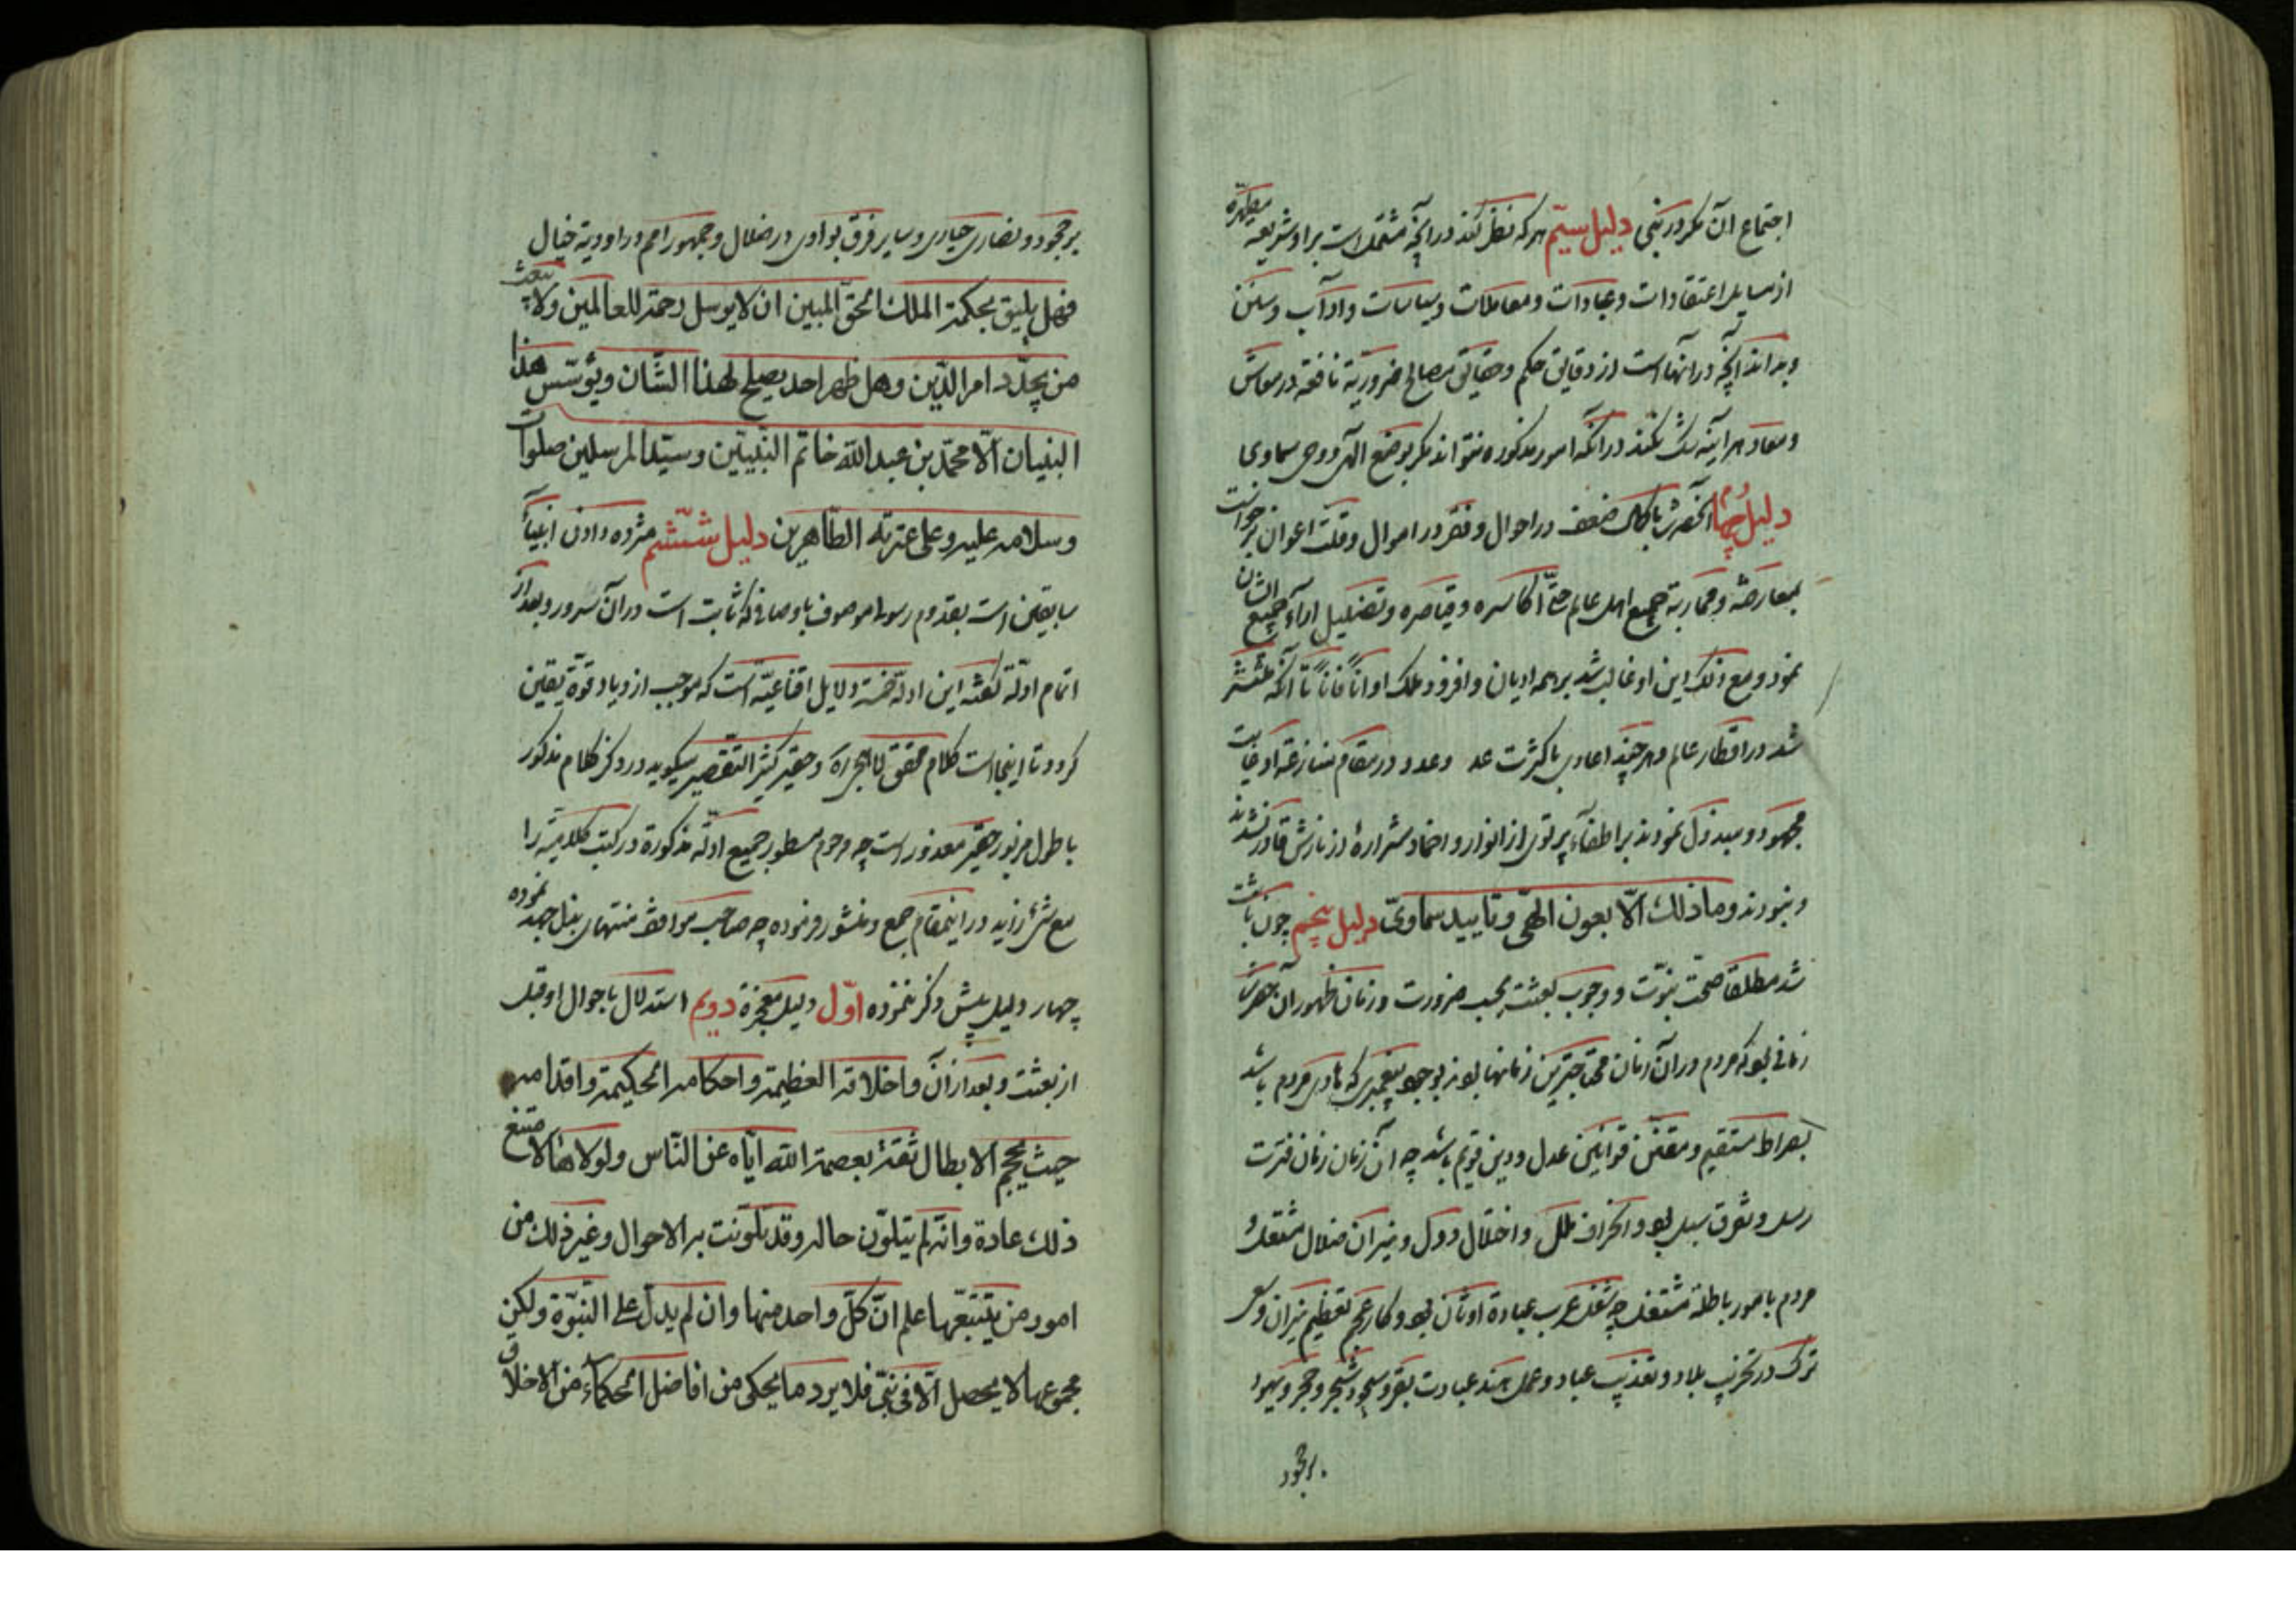 اجتماع آن مگر در نبی دلیل سیّم هر که نظر کند در آنچه مشتمل است بر او شریعه مطهّره
از مسایل اعتقادات و عبادات و معاملات و سیاسات و آداب و سنن
و بداند آنچه در آنهاست از دقایق حکم و حقایق مصالح ضروریّه نافعه در معاش
و معاد هر آینه شک نکند در آنکه امور مذکوره نتواند مگر بوضع الهی و وحی سماوی
دلیل چهارم آنحضرت با کمال ضعف در احوال و فقر در اموال و قلّت اعوان برخواست
بمعارضه و محاربه جمیع اهل عالم حتّی اکاسره و قیاصره و تضلیل آراء جمیع ایشان
نمود و مع ذلک دین او غالب شد بر همه ادیان و افزود ملک او آناً فآناً تا آنکه منتشر
شد در اقطار عالم و هر چند اعادی با کثرت عد و عدد در مقام منازعه او غایت
مجهود و مبذول نمودند بر اطفاء پرتوی از انوار و اخماد شراره از نارش قادر نشدند
و نبودند و ما ذلك الّا بعون الهیّ و تایید سماویّ دلیل پنجم چون ثابت
شد مطلقا صحّت نبوّت و وجوب بعثت بحسب ضرورت و زمان ظهور آن حضرت
زمانی بود که مردم در آن زمان محتاجترین زمانها بودند بوجود پیغمبری که هادی مردم باشد
بصراط مستقیم و مقنّن قوانین عدل و دین قویم باشد چه آن زمان زمان فترت
رسل و تفرق سبل بود و انحراف ملل و اختلال دول و نیران ضلال مشتعل و
مردم بامور باطله مشتغل چه شغل عرب عبادة اوثان بود و کار عجم تعظیم نیران و سعی
ترک در تخریب بلاد و تعذیب عباد و عمل هند عبادت بقر و سجود شجر و حجر و یهود
بر جحود
بر جحود و نصاری حیاری و سایر فرق بوادی در ضلال و جمهور امم در اودیه خیال
فهل یلیق بحکمة الملك الحقّ المبین ان لا یرسل رحمة للعالمین و لا یبعث
من یجدّد امر الدّین و هل ظهر احد یصلح لهذا الشّان و یؤسّس هذا
البنیان الّا محمّد بن عبد الله خاتم النّبیّین و سیّد المرسلین صلوات
و سلامه علیه و علی عترته الطّاهرین دلیل ششّم مژده دادن انبیاء
سابقین است بقدوم رسول موصوف باوصافی که ثابت است در آن سرور و بعد از
اتمام ادلّه گفته این ادلّه خمسه دلایل اقناعیّه است که موجب ازدیاد قوّة یقین
گردد تا اینجاست کلام محقق لاهیجی ره و حقیر کثیر التقصیر میگوید در ذکر کلام مذکور
با طول مزبور حقیر معذور است چه مرحوم مسطور جمیع ادلّه مذکورة در کتب کلامیّه را
مع شئ زاید در اینمقام جمع و منشور فرموده چه صاحب مواقف منتهای بذل جهد نموده
چهار دلیل بیش ذکر ننموده اوّل دلیل معجزة دویم استدلال باحوال او قبل
از بعثت و بعد از آن و اخلاقه العظیمة و احکامه الحکیمة و اقدامه
حیث یحجم الابطال ثقة بعصمة الله ایّاه عن النّاس و لولاها لامتنع
ذلك عادة و انّه لم یتلوّن حاله و قد تلوّنت به الاحوال و غیر ذلك من
امور من یتتبّعها علم انّ کلّ واحد منها و ان لم یدلّ علی النبّوة و لکن
مجموعها لا یحصل الّا فی نبیّ فلا یرد ما یحکی من افاضل الحکماء من الاخلاق